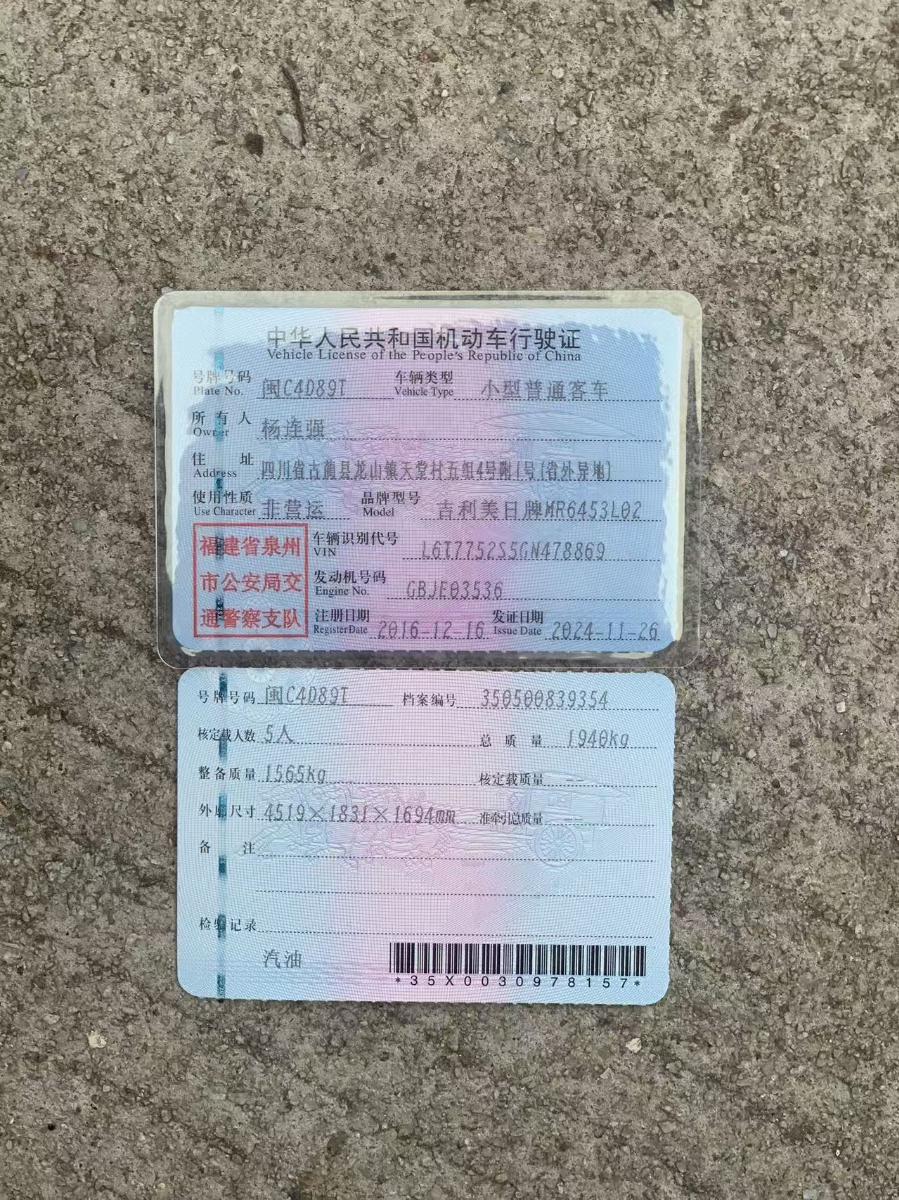 中华人民共和国机动车行驶证
Vehicle License of the People's Republic of China
号牌号码 Plate No. 闽C4D89T 车辆类型 Vehicle Type 小型普通客车
所有人 Owner 杨连强
住址 Address 四川省古蔺县龙山镇天堂村五组4号附1号(省外异地)
使用性质 Use Character 非营运 品牌型号 Model 吉利美日牌MR6453L02
福建省泉州
市公安局交
通警察支队
车辆识别代号 VIN L6T7752S5GN478869
发动机号码 Engine No. GBJE03536
注册日期 Register Date 2016-12-16 发证日期 Issue Date 2024-11-26
号牌号码 闽C4D89T 档案编号 350500839354
核定载人数 5人 总质量 1940kg
整备质量 1565kg 核定载质量 --
外廓尺寸 4519×1831×1694mm 准牵引总质量 --
备注
检验记录
汽油
*35X0030978157*